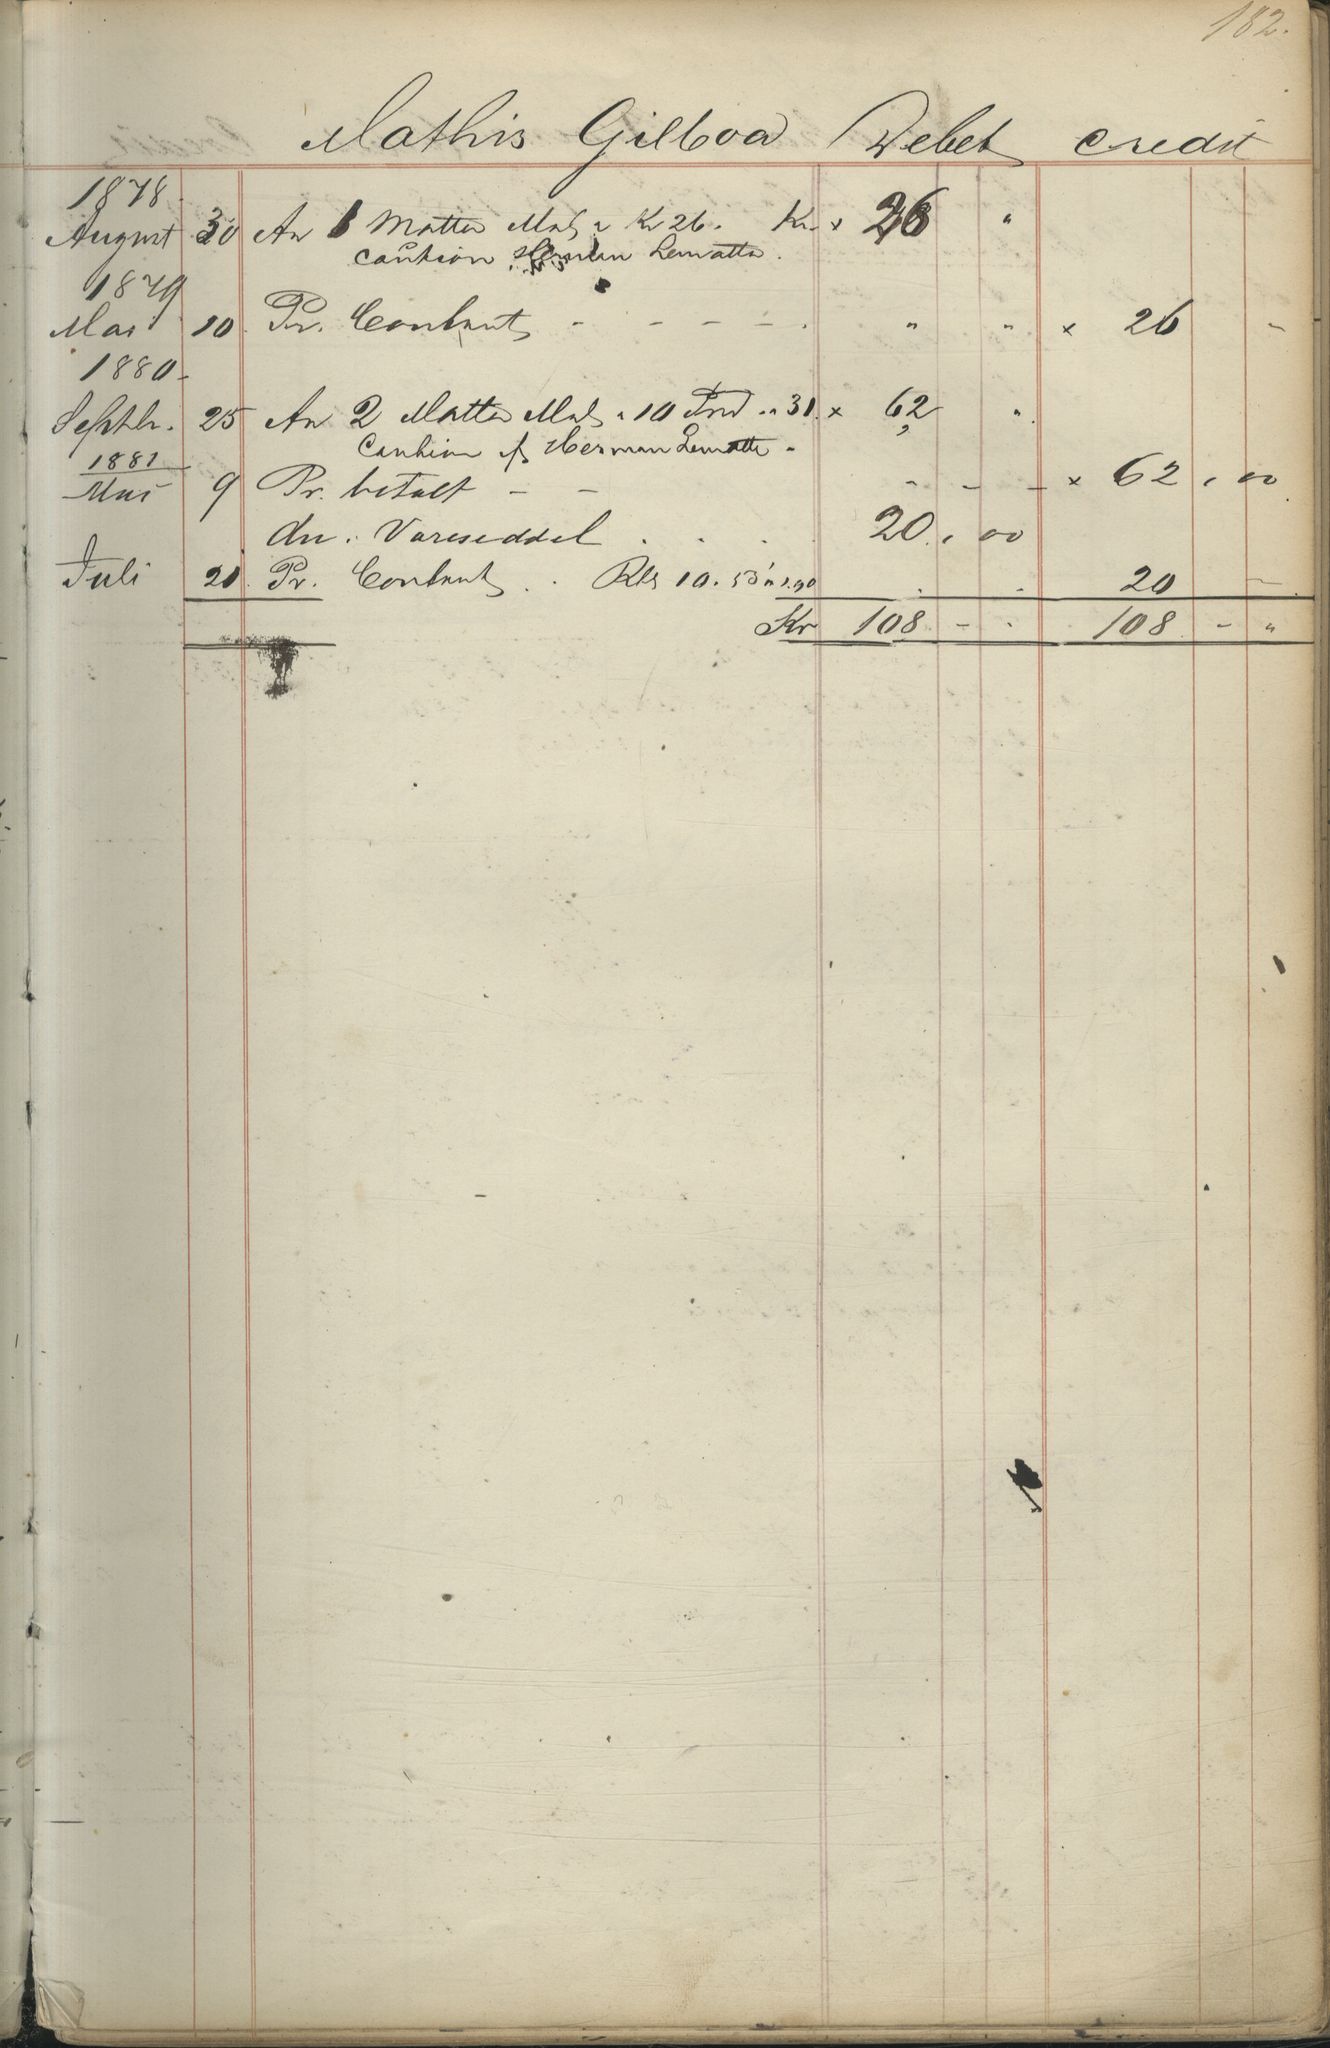 182.
Mathis Gilboa Debet Credit
1878.
August 30 An 1 Matte Mel a Kr 26. Kr. x 26 "
Caution Herman Lematta.
1879
Mai 10 Pr. Contant - - - - - " " x 26 -
1880-
Septbr. 25 An 2 Matter Mel a 10 " 31. x 62 "
Caution af Herman Lematte -
1881
Mai 9 Pr. betalt - - - - - x 62 , 00
An. Vareseddel . . . . 20 , 00
Juli 21. Pr. Contant . Rbl 10. 53 a 1.90 . . 20 -
Kr 108 - - 108 - "